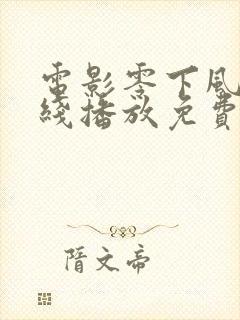 電影零下風
綫播放免費
隋文帝